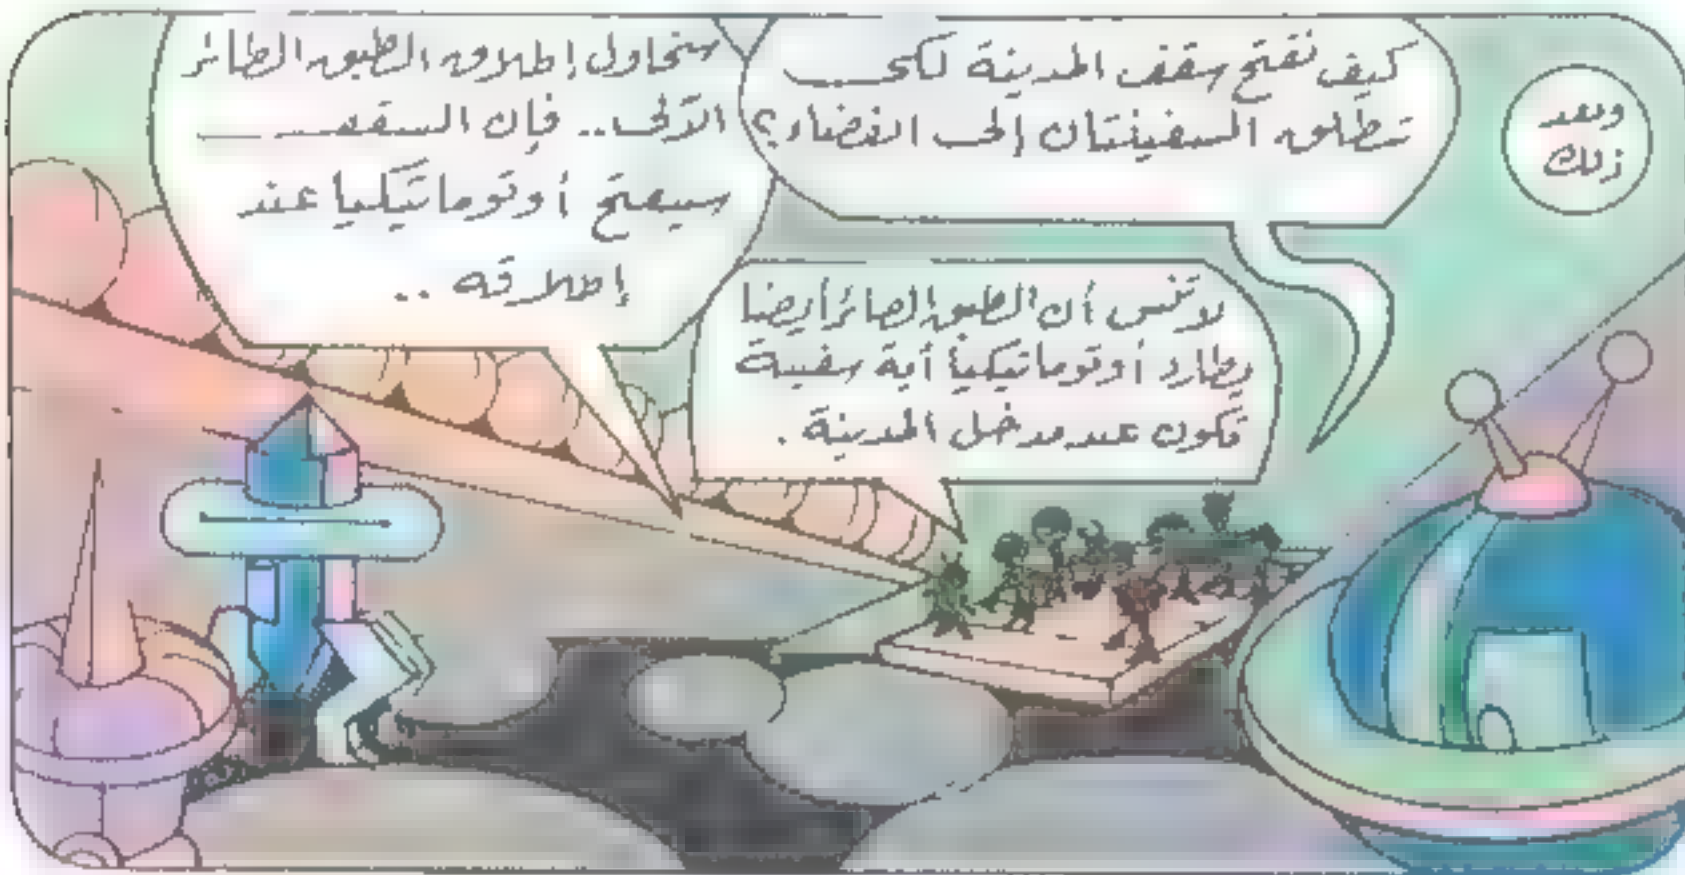 وبعد
ذلك
كيف نفتح سقف المدينة لكي
تنطلق السفينتان إلى الفضاء؟
سنحاول إطلاق الطبق الطائر
الآلي.. فإن السقف
سيفتح أوتوماتيكيا عند
إطلاقه ..
لا تنس أن الطبق الطائر أيضا
يطارد أوتوماتيكياً أية سفينة
تكون عند مدخل المدينة .